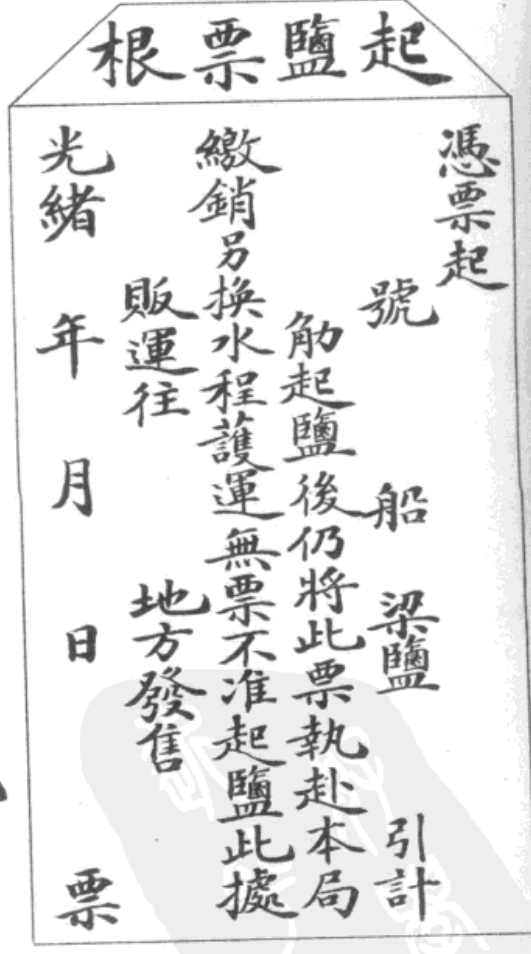 起鹽票根
憑票起
號 船 梁鹽 引計
觔起鹽後仍將此票執赴本局
繳銷另換水程護運無票不准起鹽此據
販運往 地方發售
光緒 年 月 日 票